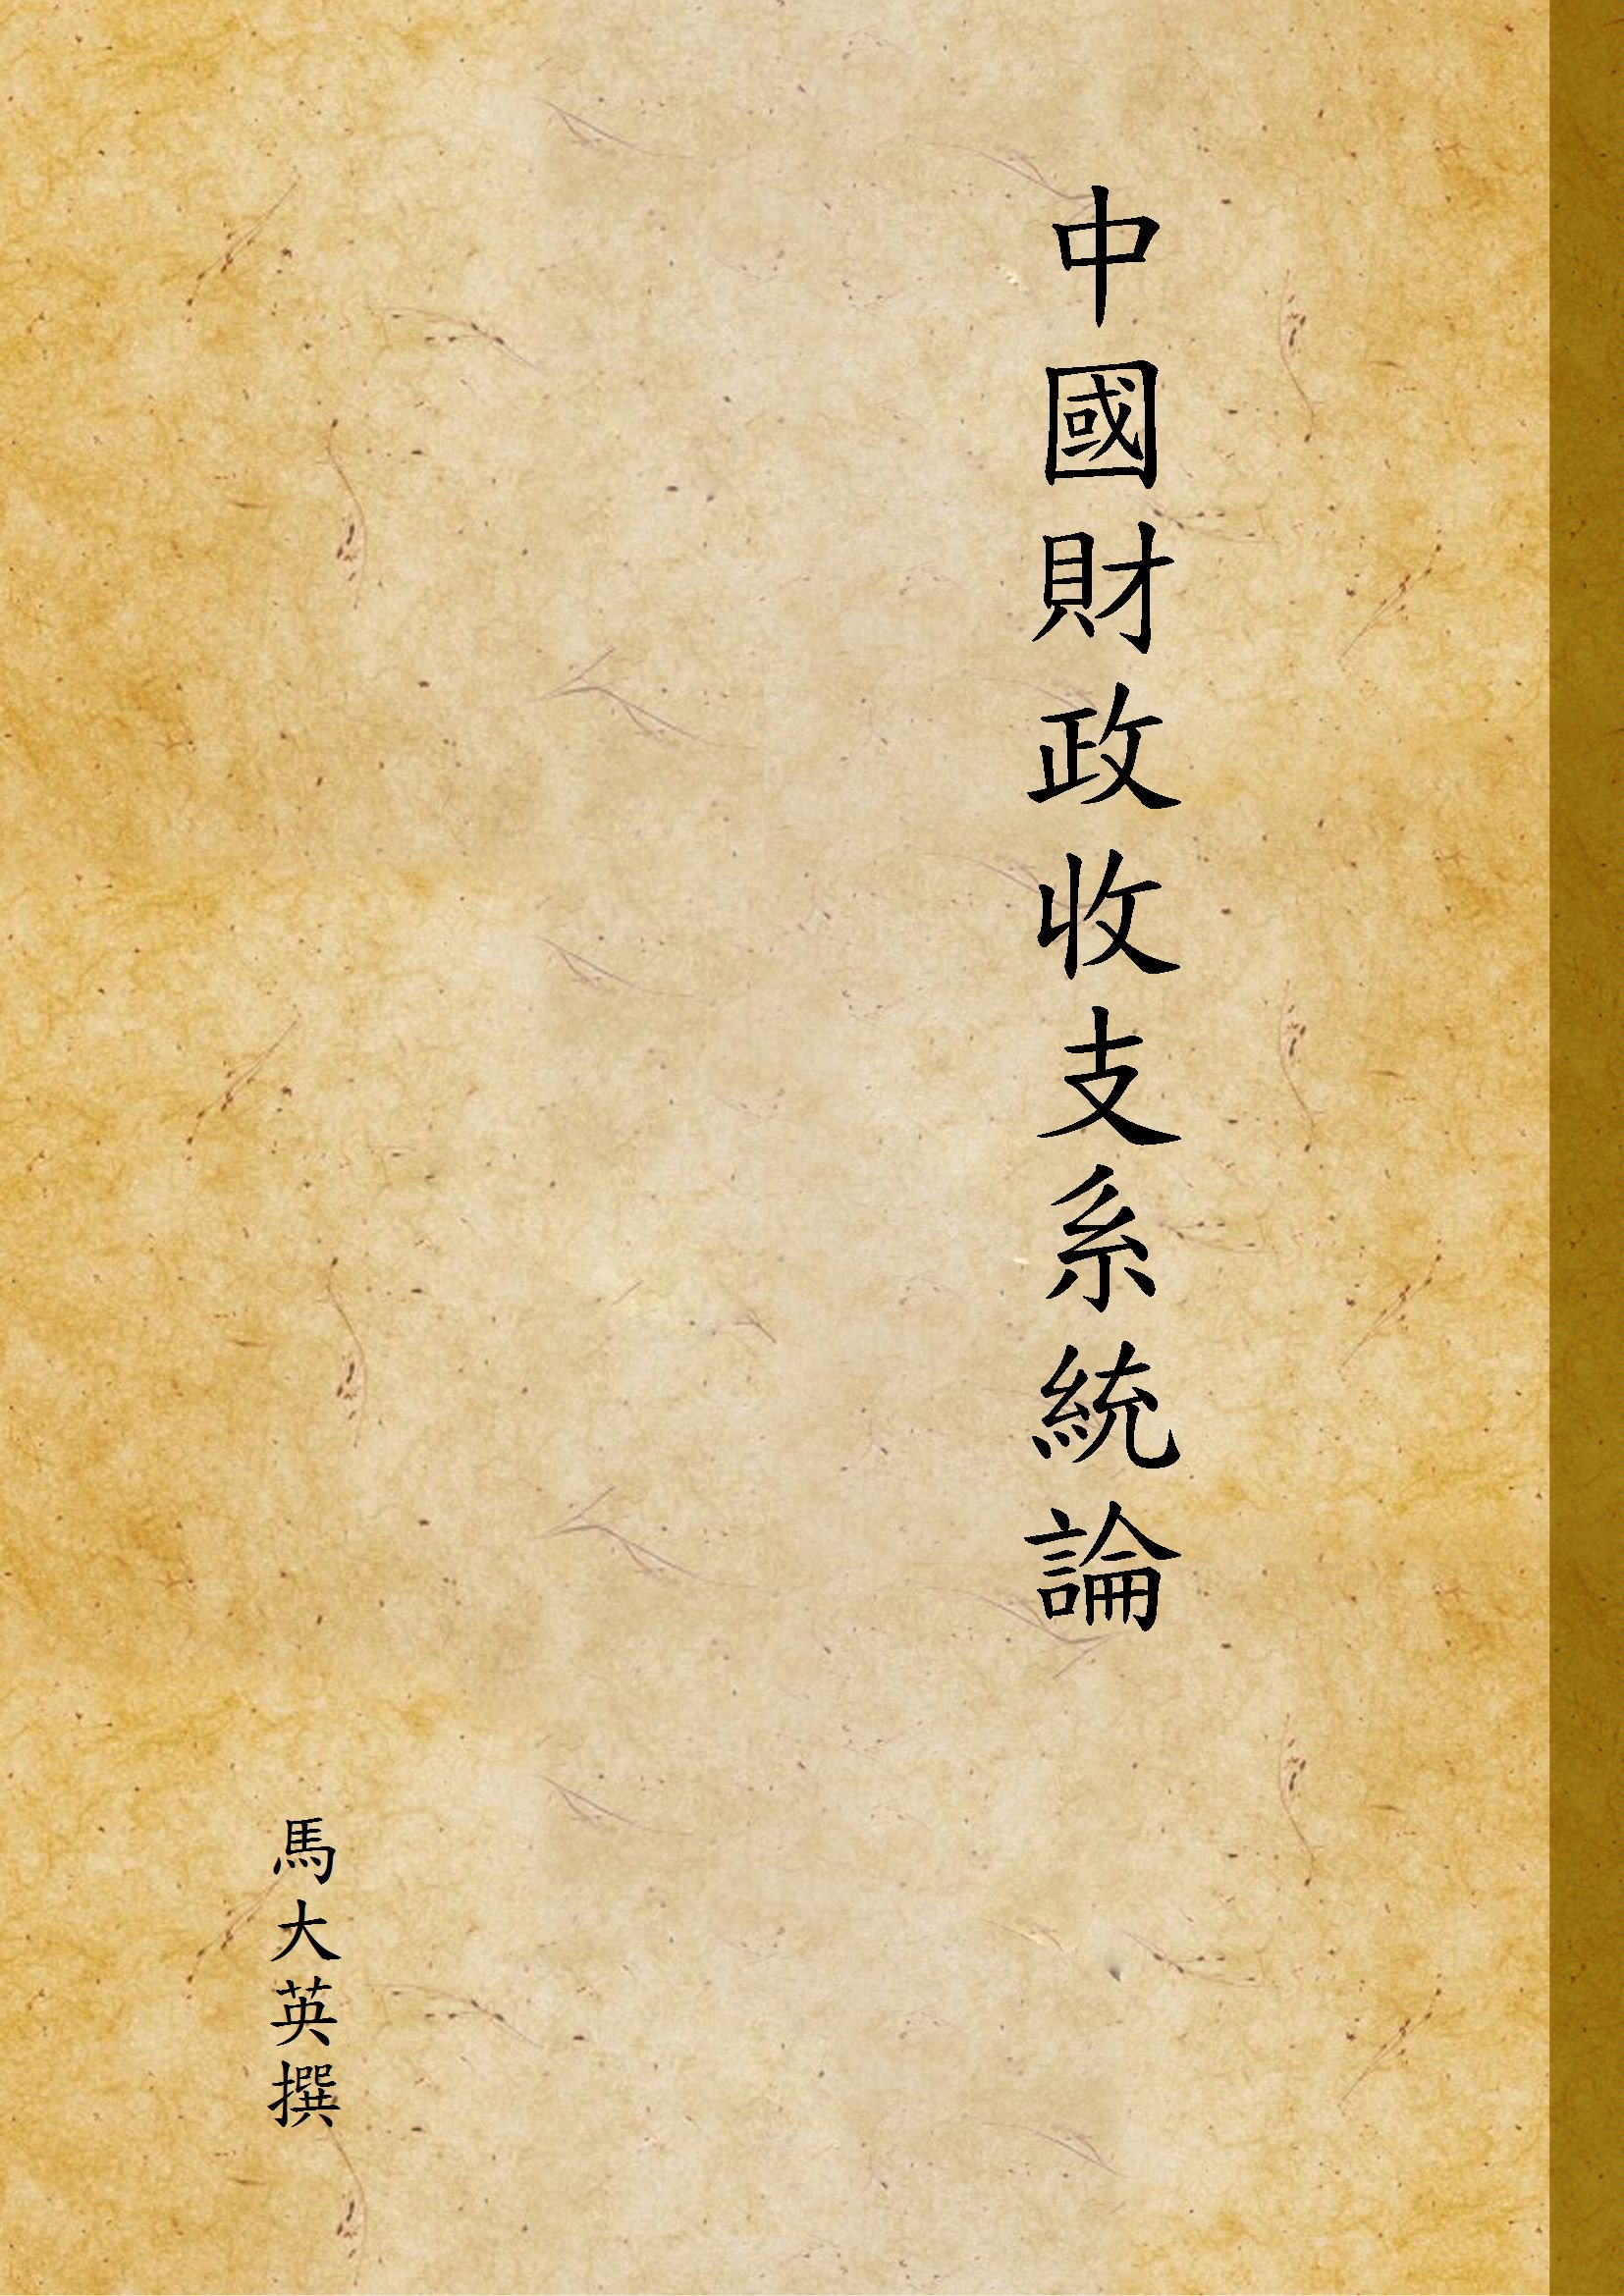 中國財政收支系統論
馬大英撰